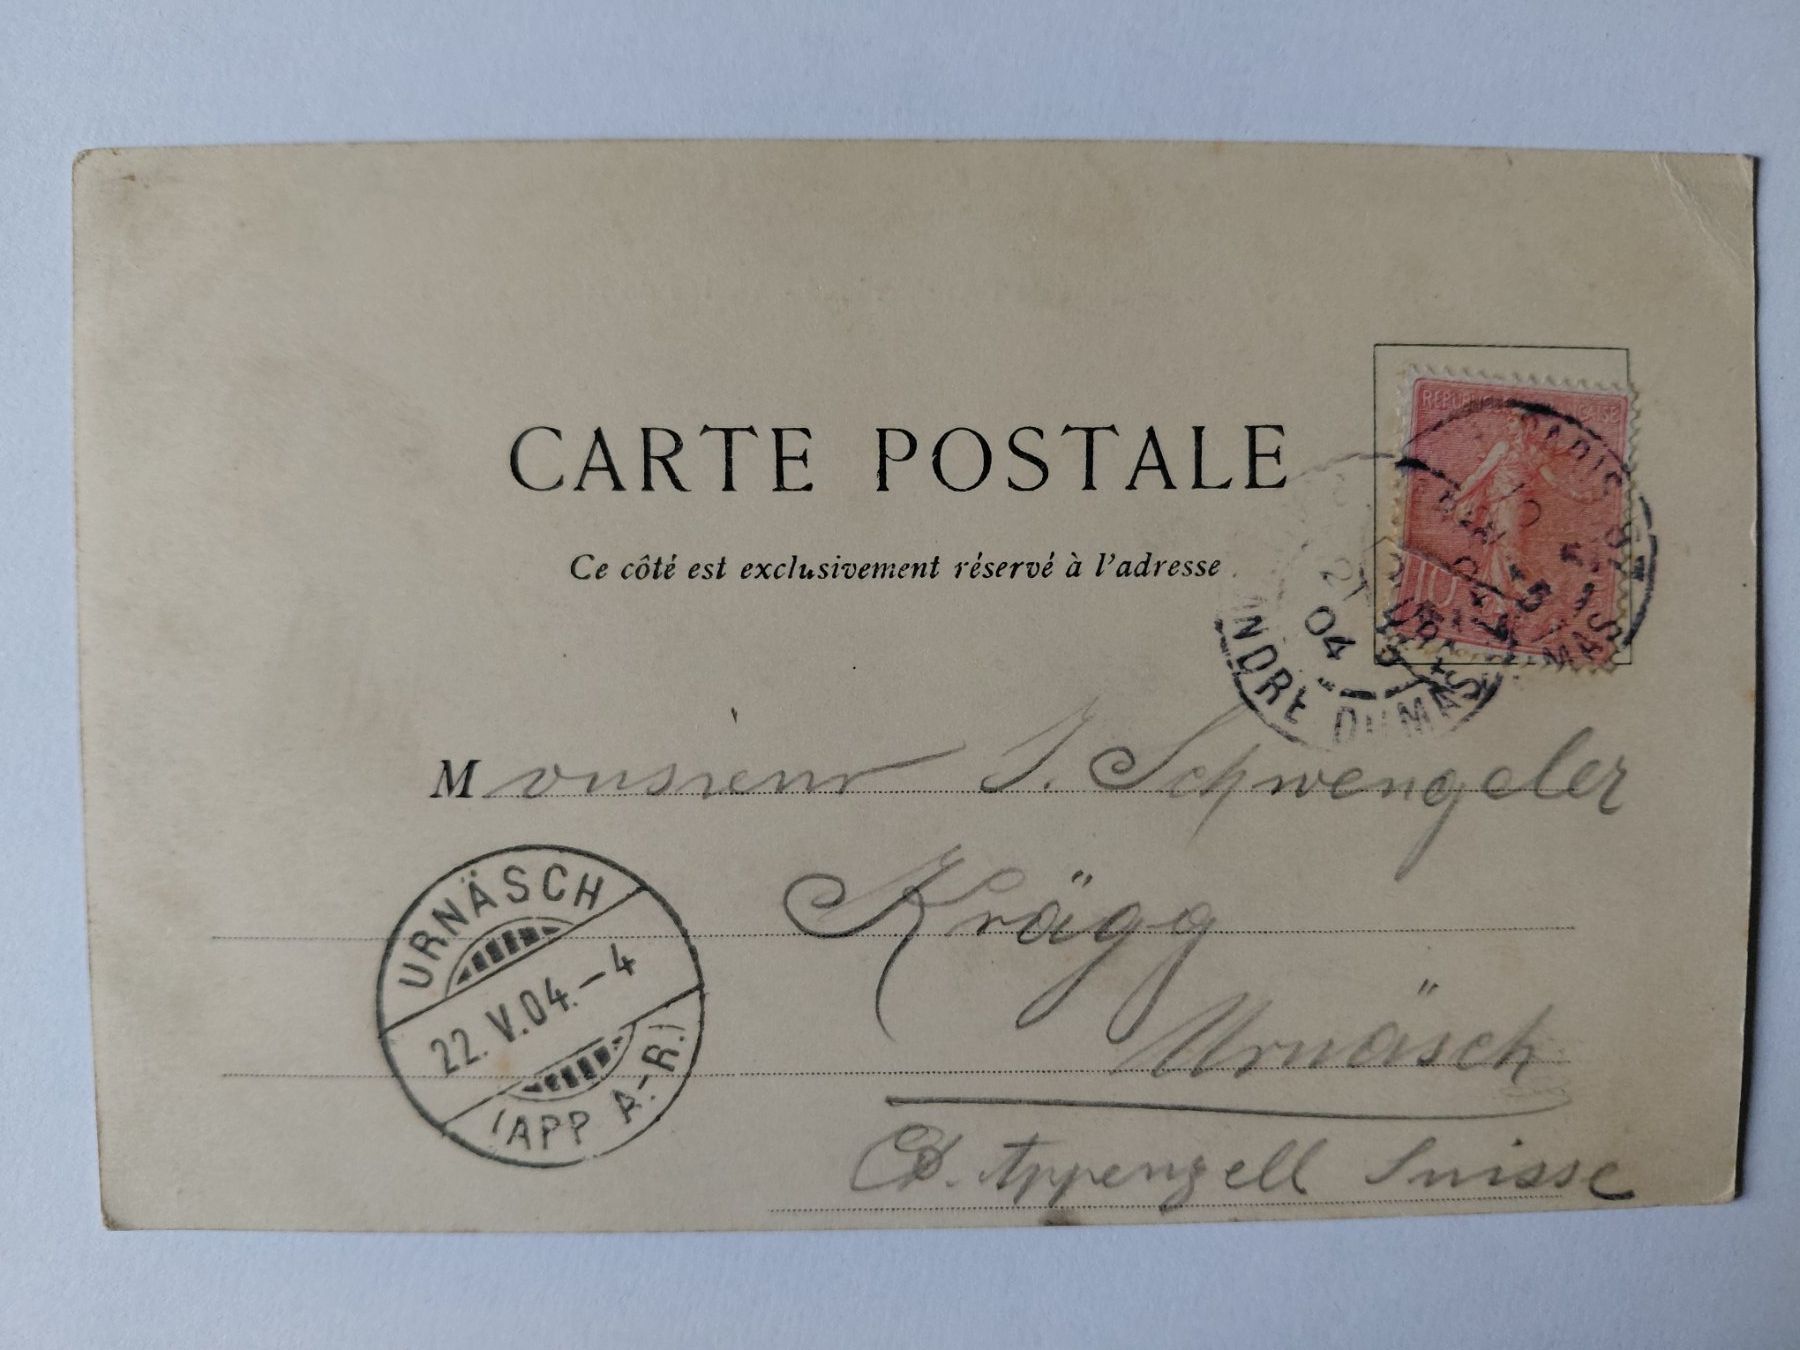 CARTE POSTALE
Ce côté est exclusivement réservé à l'adresse
RÉPUBLIQUE FRANÇAISE
10
PARIS
21
04
DUMAS
Monsieur J. Schwengeler
Krägg
Urnäsch
Ct. Appenzell Suisse
URNÄSCH
22. V. 04. – 4
(APP A.-R.)